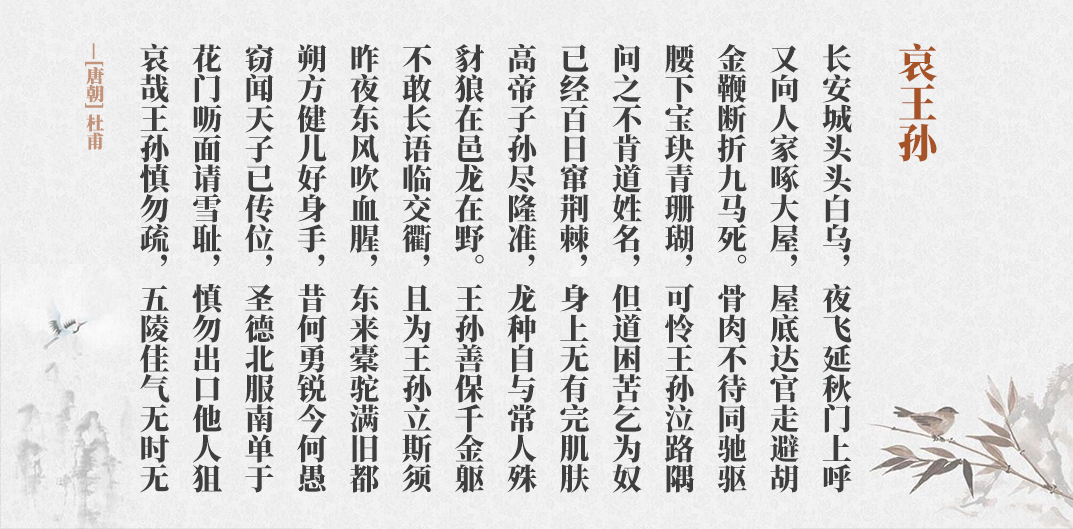 哀王孙
长安城头头白乌，夜飞延秋门上呼
又向人家啄大屋，屋底达官走避胡
金鞭断折九马死。骨肉不待同驰驱
腰下宝玦青珊瑚，可怜王孙泣路隅
问之不肯道姓名，但道困苦乞为奴
已经百日窜荆棘，身上无有完肌肤
高帝子孙尽隆准，龙种自与常人殊
豺狼在邑龙在野。王孙善保千金躯
不敢长语临交衢，且为王孙立斯须
昨夜东风吹血腥，东来橐驼满旧都
朔方健儿好身手，昔何勇锐今何愚
窃闻天子已传位，圣德北服南单于
花门呖面请雪耻，慎勿出口他人狙
哀哉王孙慎勿疏，五陵佳气无时无
—[唐朝] 杜甫